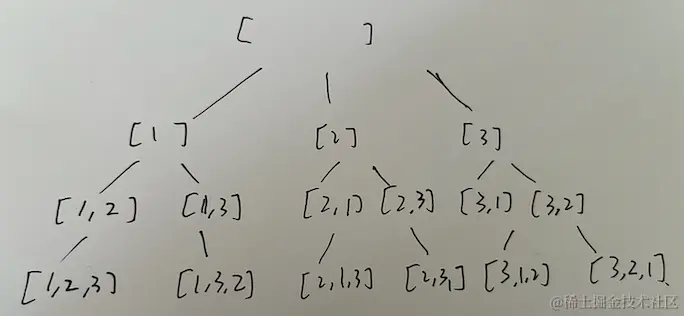 [ ]
[1] [2] [3]
[1,2] [1,3] [2,1] [2,3] [3,1] [3,2]
[1,2,3] [1,3,2] [2,1,3] [2,3,1] [3,1,2] [3,2,1]
@稀土掘金技术社区